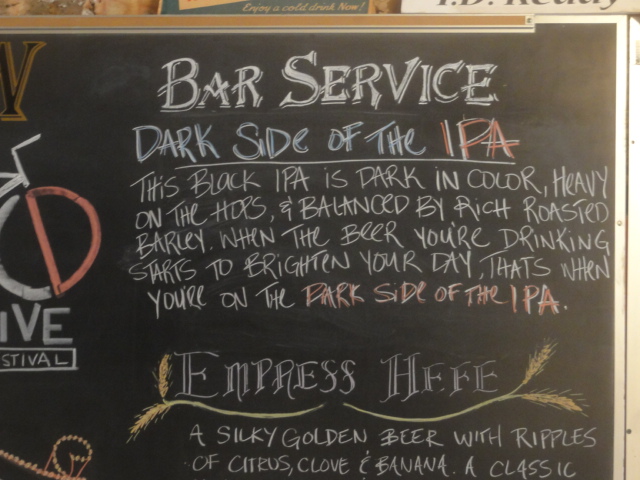 Enjoy a cold drink Now!
BAR SERVICE
DARK SIDE OF THE IPA
THIS BLACK IPA IS DARK IN COLOR, HEAVY
ON THE HOPS, & BALANCED BY RICH ROASTED
BARLEY. WHEN THE BEER YOU'RE DRINKING
STARTS TO BRIGHTEN YOUR DAY, THATS WHEN
YOU'RE ON THE DARK SIDE OF THE IPA.
IVE
STIVAL
EMPRESS HEFE
A SILKY GOLDEN BEER WITH RIPPLES
OF CITRUS, CLOVE & BANANA. A CLASSIC